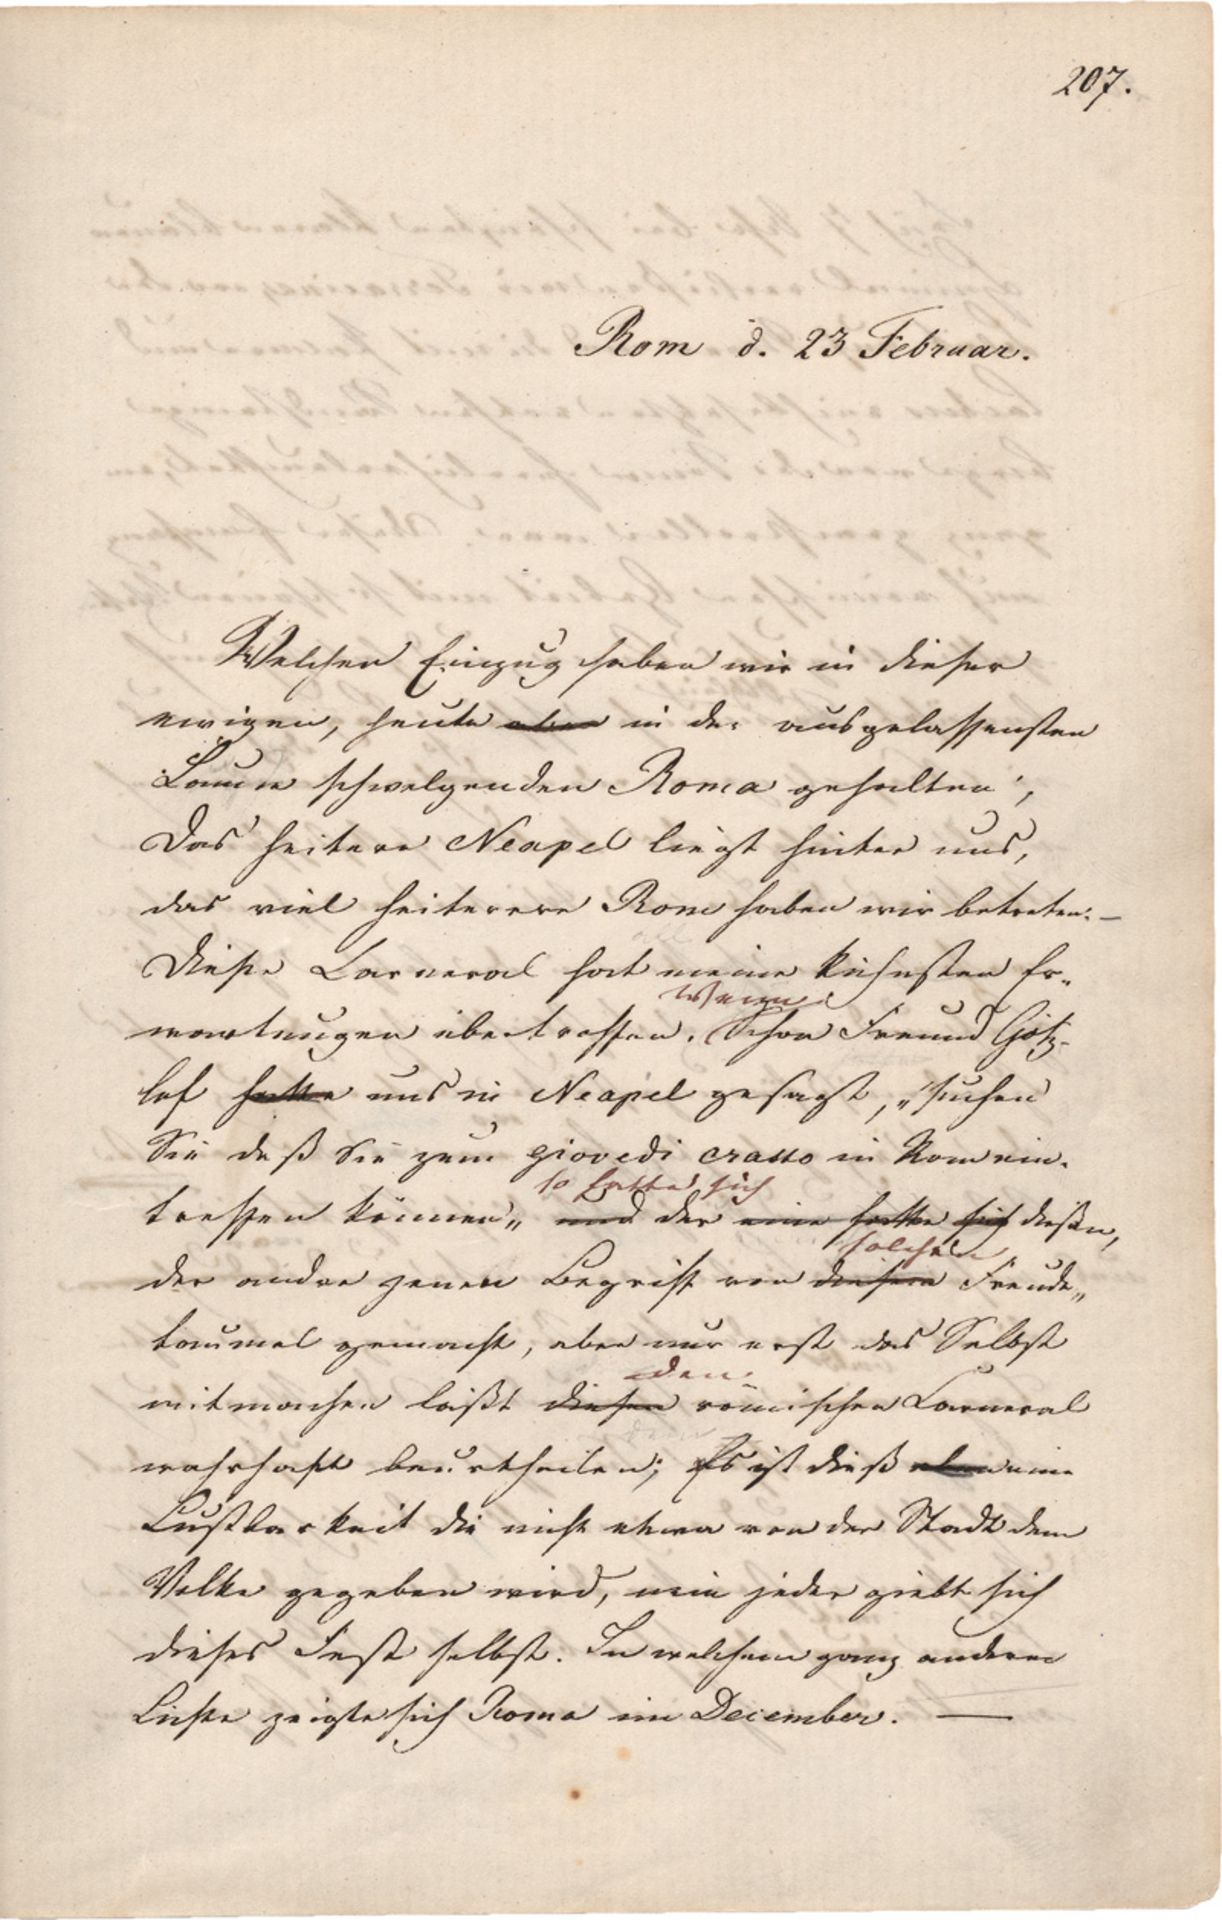 207.
Rom d. 23 Februar.
Welchen Einzug haben wir in dieser
ewigen, heute aber in der ausgelassensten
Laune schwelgenden Roma gehalten,
Das heitere Neapel liegt hinter uns,
das viel heiterere Rom haben wir betreten. —
Diese Carneval hat meine kühnsten Er„
Wenn
wartungen übertroffen. Schon Freund Götz-
lof hatte uns in Neapel gesagt, „suchen
Sie daß Sie zum giovedi grasso in Rom ein-
so hatte sich
treffen können„ und der eine hatte sich diesen,
solchem
der andre jenen Begriff von diesem Freude„
taumel gemacht, aber nur erst das Selbst
den
mitmachen läßt diesen römischen Carneval
wahrhaft beurtheilen; Es ist dieß eben eine
Lustbarkeit die nicht etwa von der Stadt dem
Volke gegeben wird, nein jeder giebt sich
dieses Fest selbst. In welchem ganz anderen
Lichte zeigte sich Roma im December. —